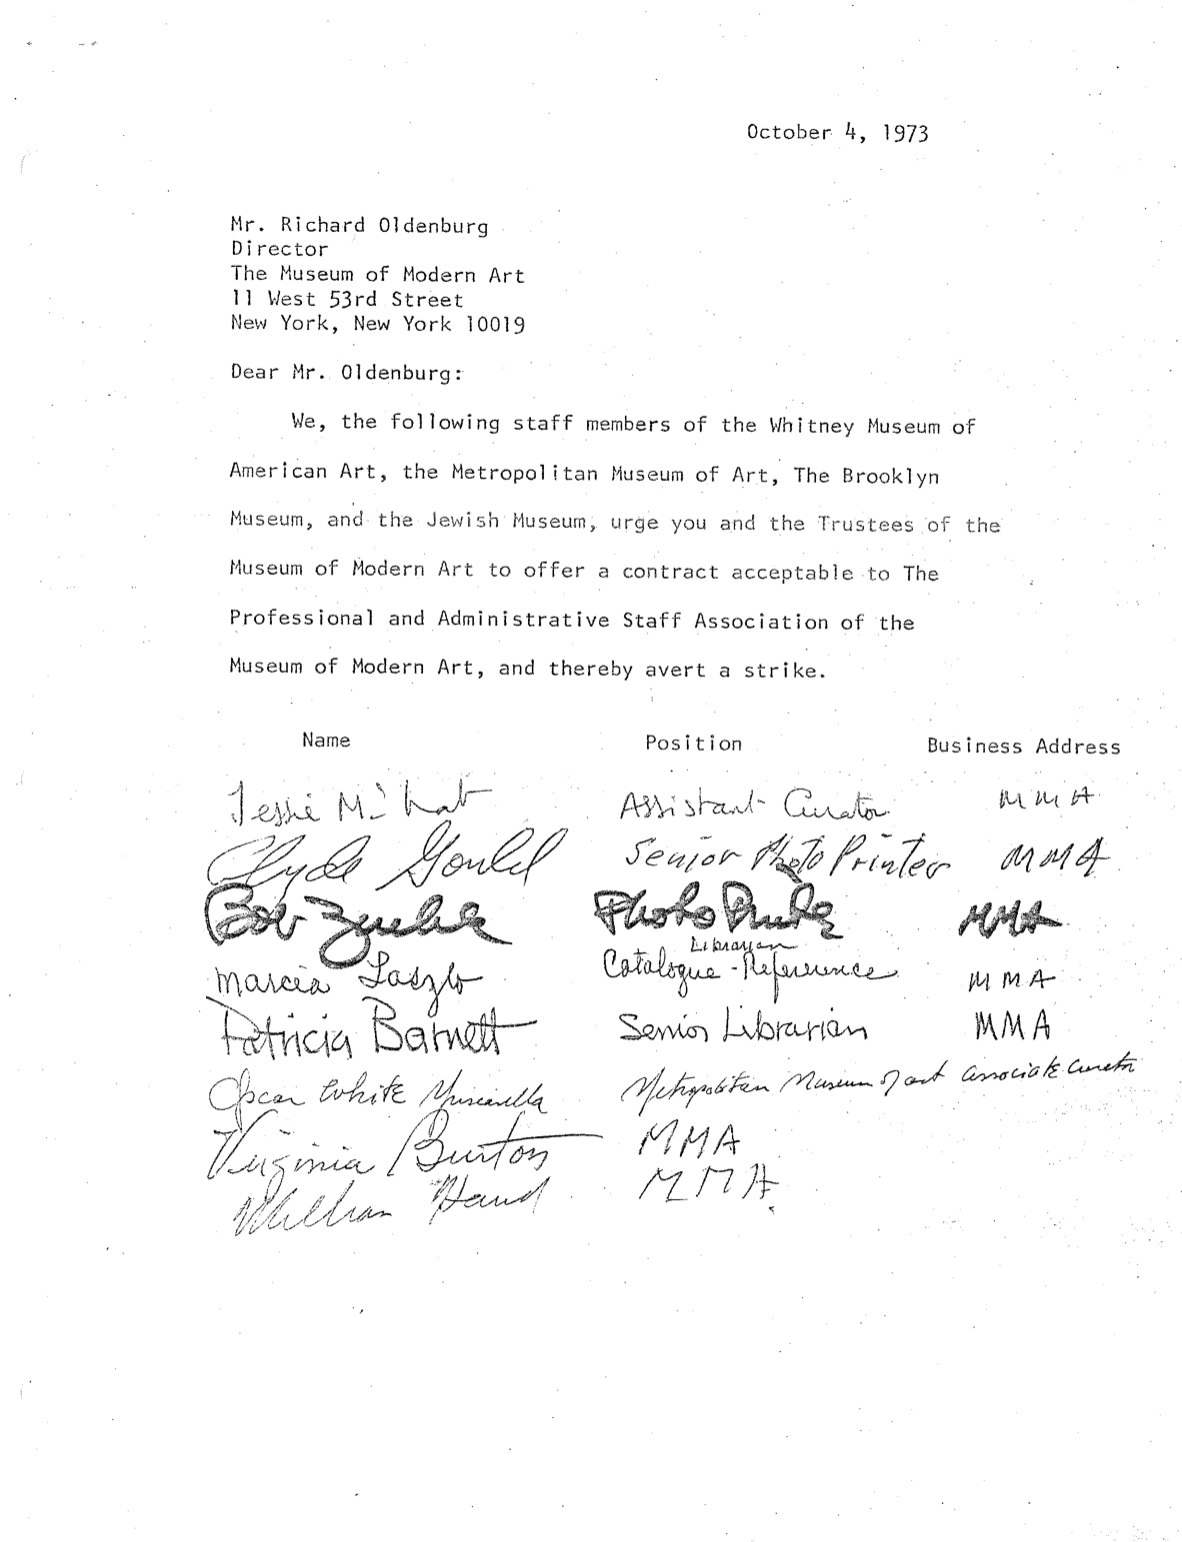 October 4, 1973
Mr. Richard Oldenburg
Director
The Museum of Modern Art
11 West 53rd Street
New York, New York 10019
Dear Mr. Oldenburg:
We, the following staff members of the Whitney Museum of
American Art, the Metropolitan Museum of Art, The Brooklyn
Museum, and the Jewish Museum, urge you and the Trustees of the
Museum of Modern Art to offer a contract acceptable to The
Professional and Administrative Staff Association of the
Museum of Modern Art, and thereby avert a strike.
Name Position Business Address
Jessie Assistant Curator MMA
Clyde Gould Senior Photo Printer MMA
Bob Photo MMA
Librarian
Marcia Laszlo Catalogue - Reference MMA
Patricia Barnett Senior Librarian MMA
Oscar White Muscarella Metropolitan Museum of art associate curator
Virginia Burton MMA
William MMA